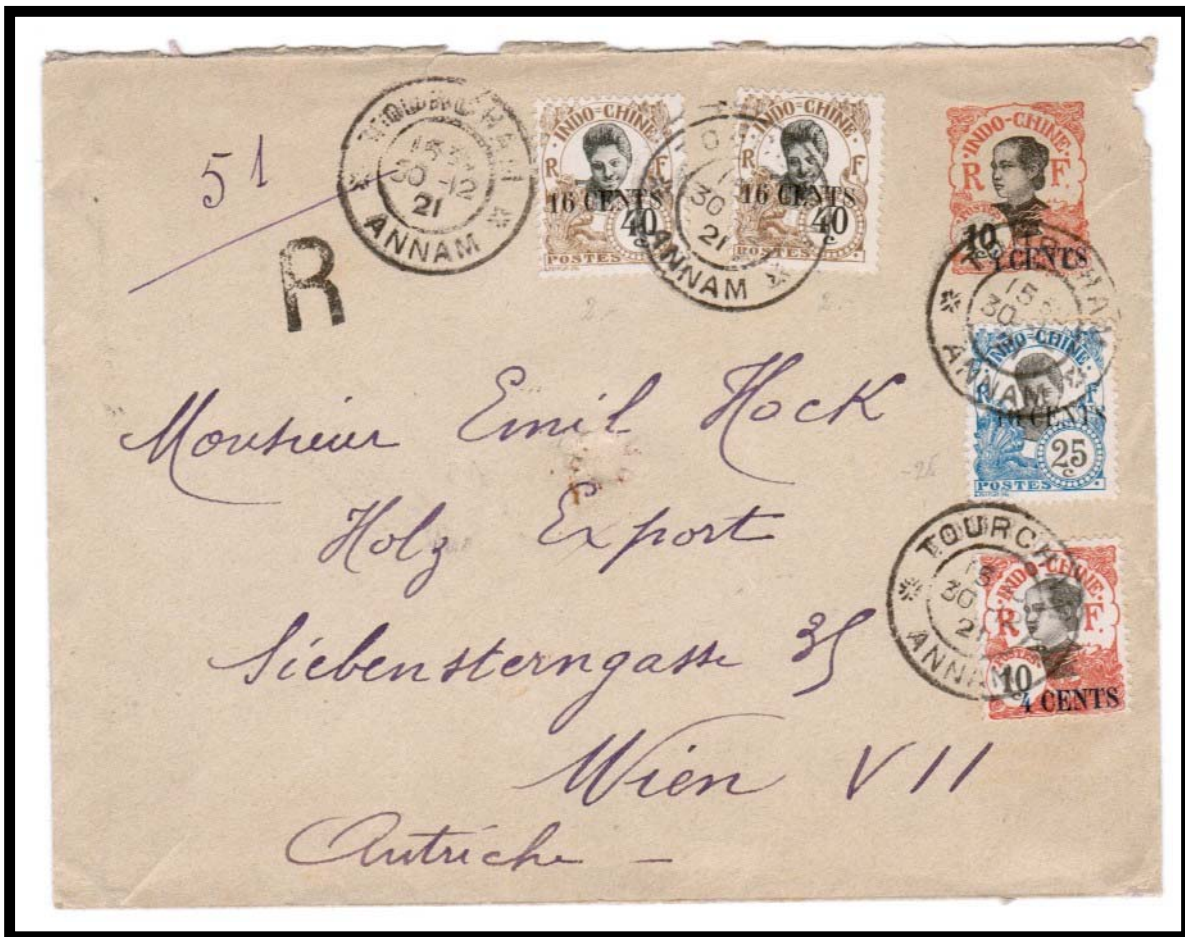 51
R
TOURCHAM
15
30 -12
21
ANNAM
INDO-CHINE
R F
16 CENTS
40
c
POSTES
ANNAM
30
21
INDO-CHINE
R F
16 CENTS
40
c
POSTES
INDO-CHINE
R F.
10
4 CENTS
15
30
ANNAM
INDO-CHINE
R F
10 CENTS
25
c
POSTES
TOURCH
15
30
21
ANNAM
INDO-CHINE
R F.
10
4 CENTS
Monsieur Emil Hock
Holz Export
Siebensterngasse 35
Wien VII
Autriche -